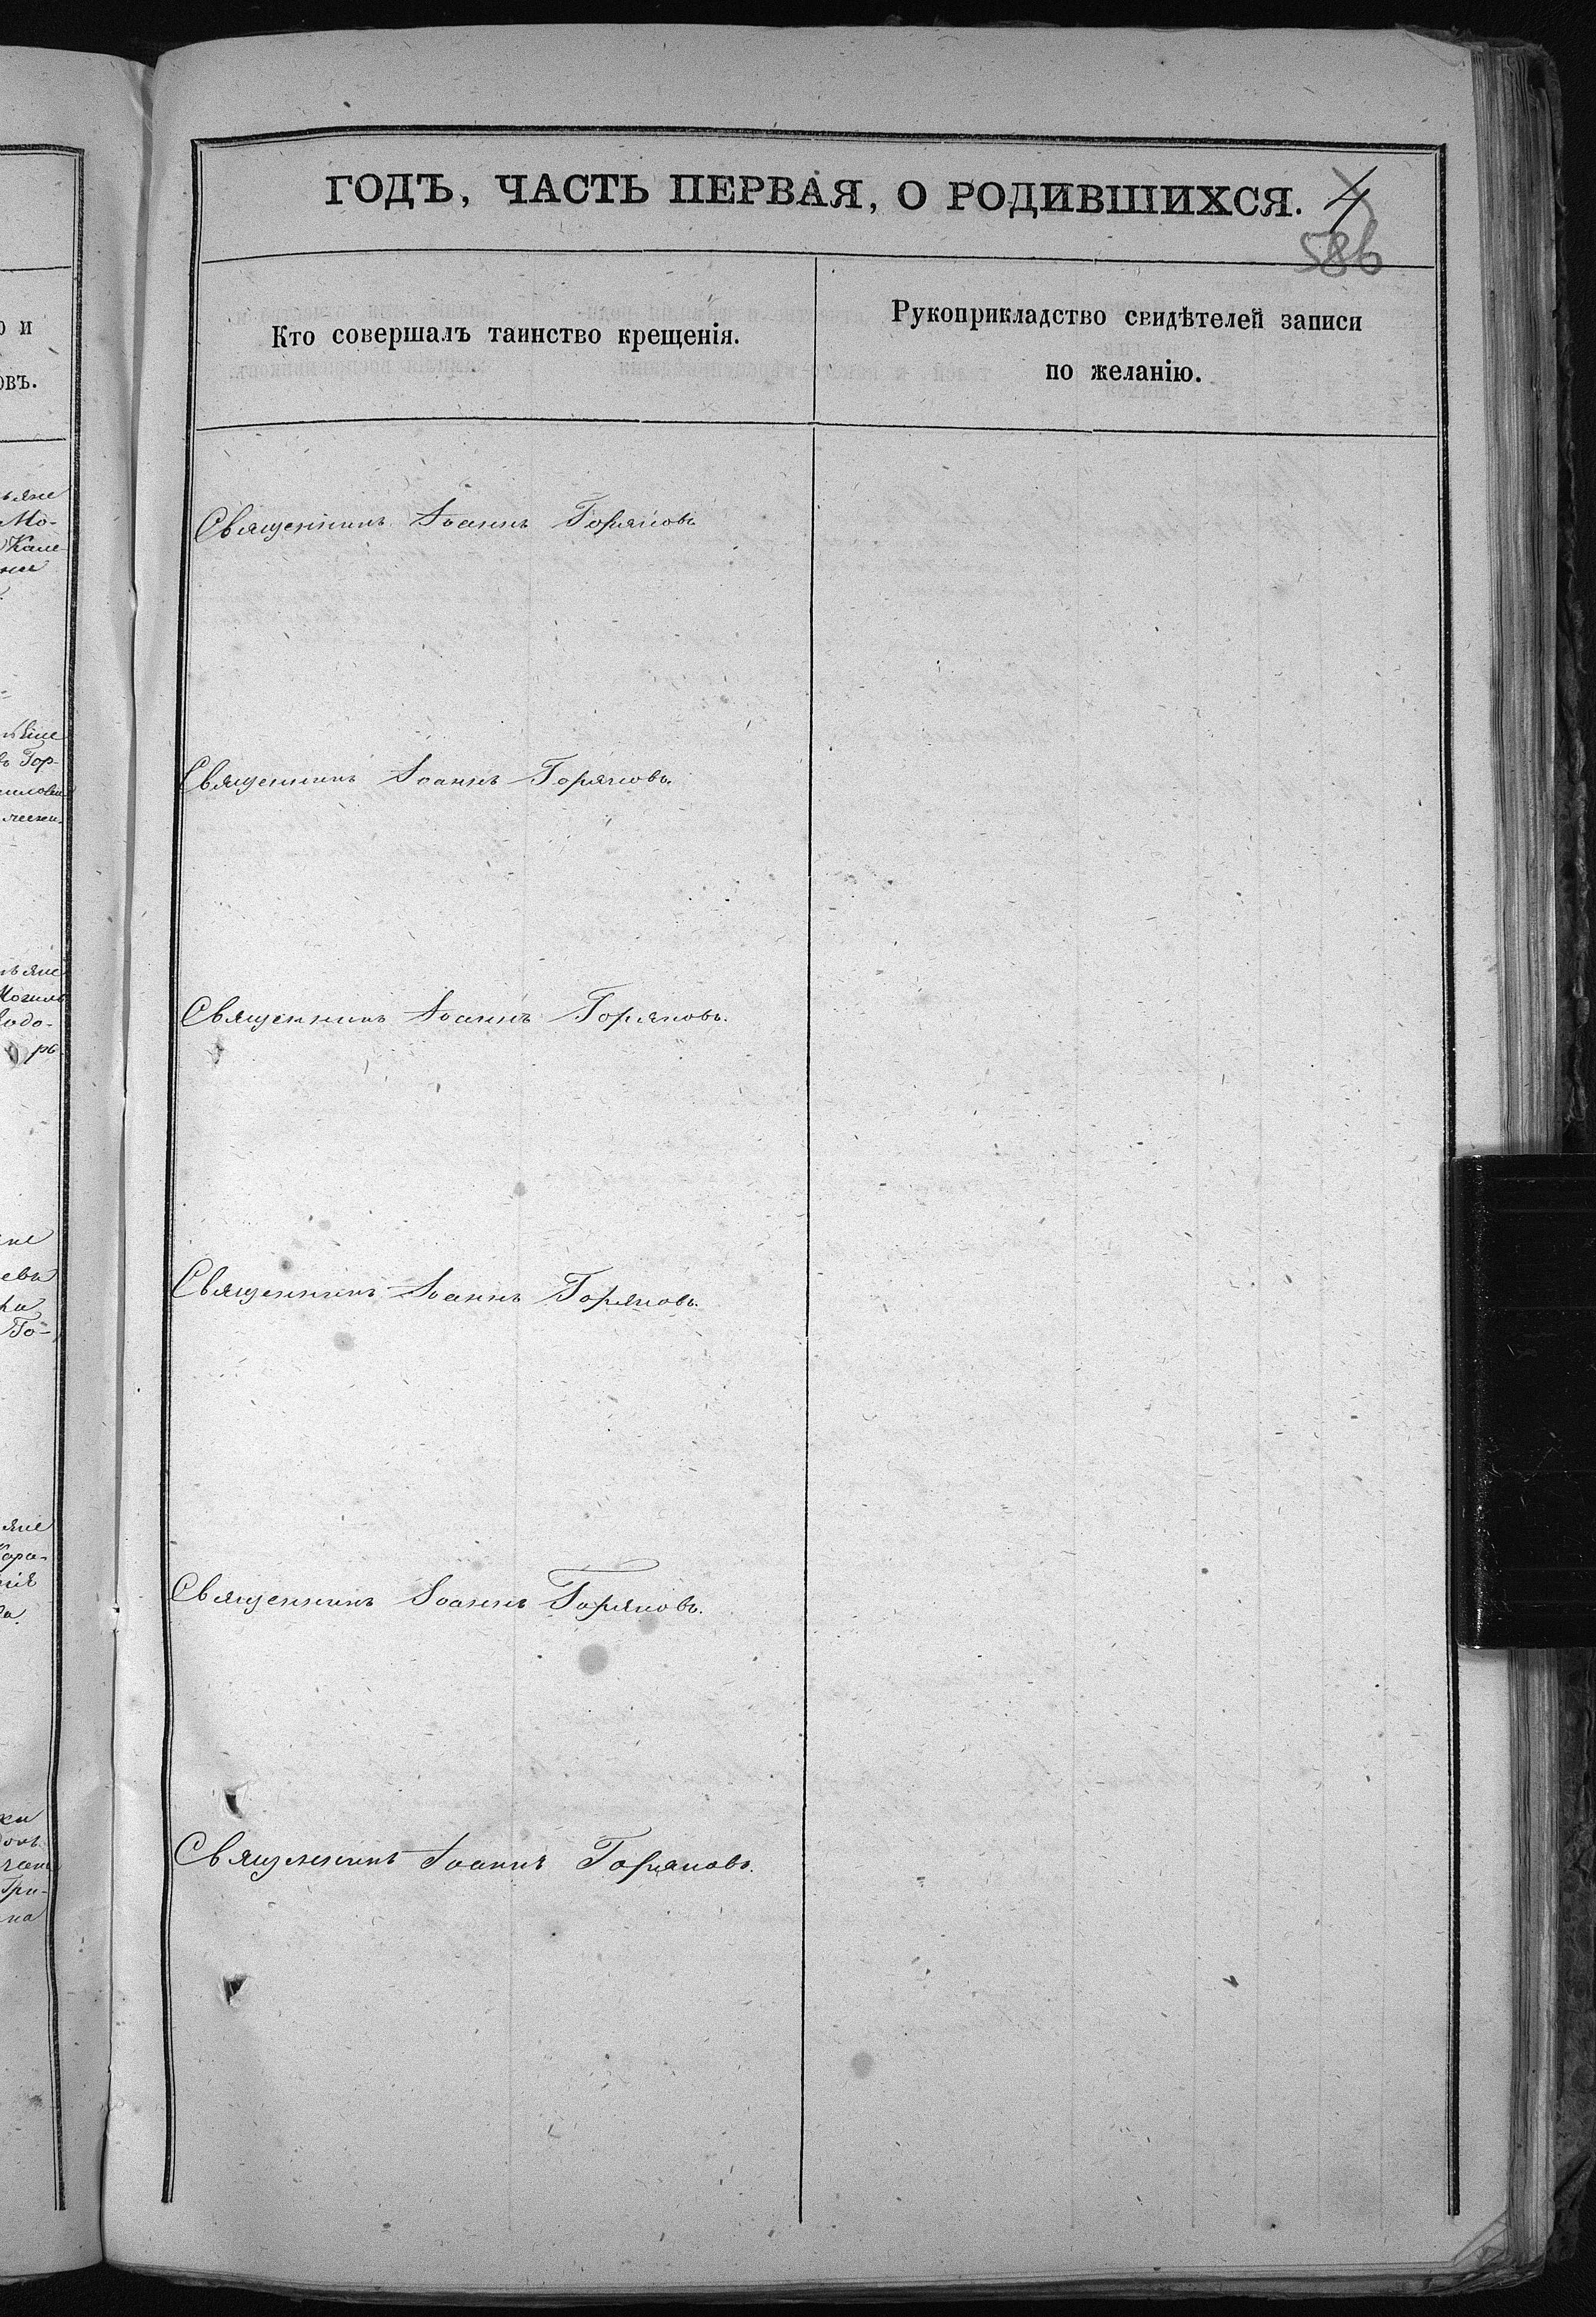 ГОДЪ, ЧАСТЬ ПЕРВАЯ, О РОДИВШИХСЯ. 4
586
Кто совершалъ таинство крещенія.
Рукоприкладство свидѣтелей записи
по желанію.
Священникъ Іоаннъ Горяновъ
Священникъ Іоаннъ Горяновъ.
Священникъ Іоаннъ Горяновъ.
Священникъ Іоаннъ Горяновъ.
Священникъ Іоаннъ Горяновъ.
Священникъ Іоаннъ Горяновъ.